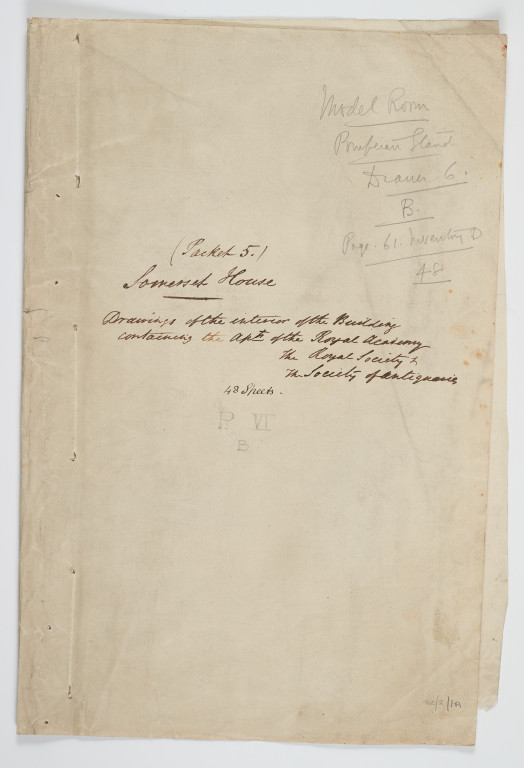 Model Room
Pompeian Stand
Drawer 6.
B.
Page. 61. Inventory D
48
(Packet 5.)
Somerset House
Drawings of the interior of the Building
containing the Apts. of the Royal Academy
the Royal Society &
the Society of Antiquaries
48 Sheets.
P VI
B